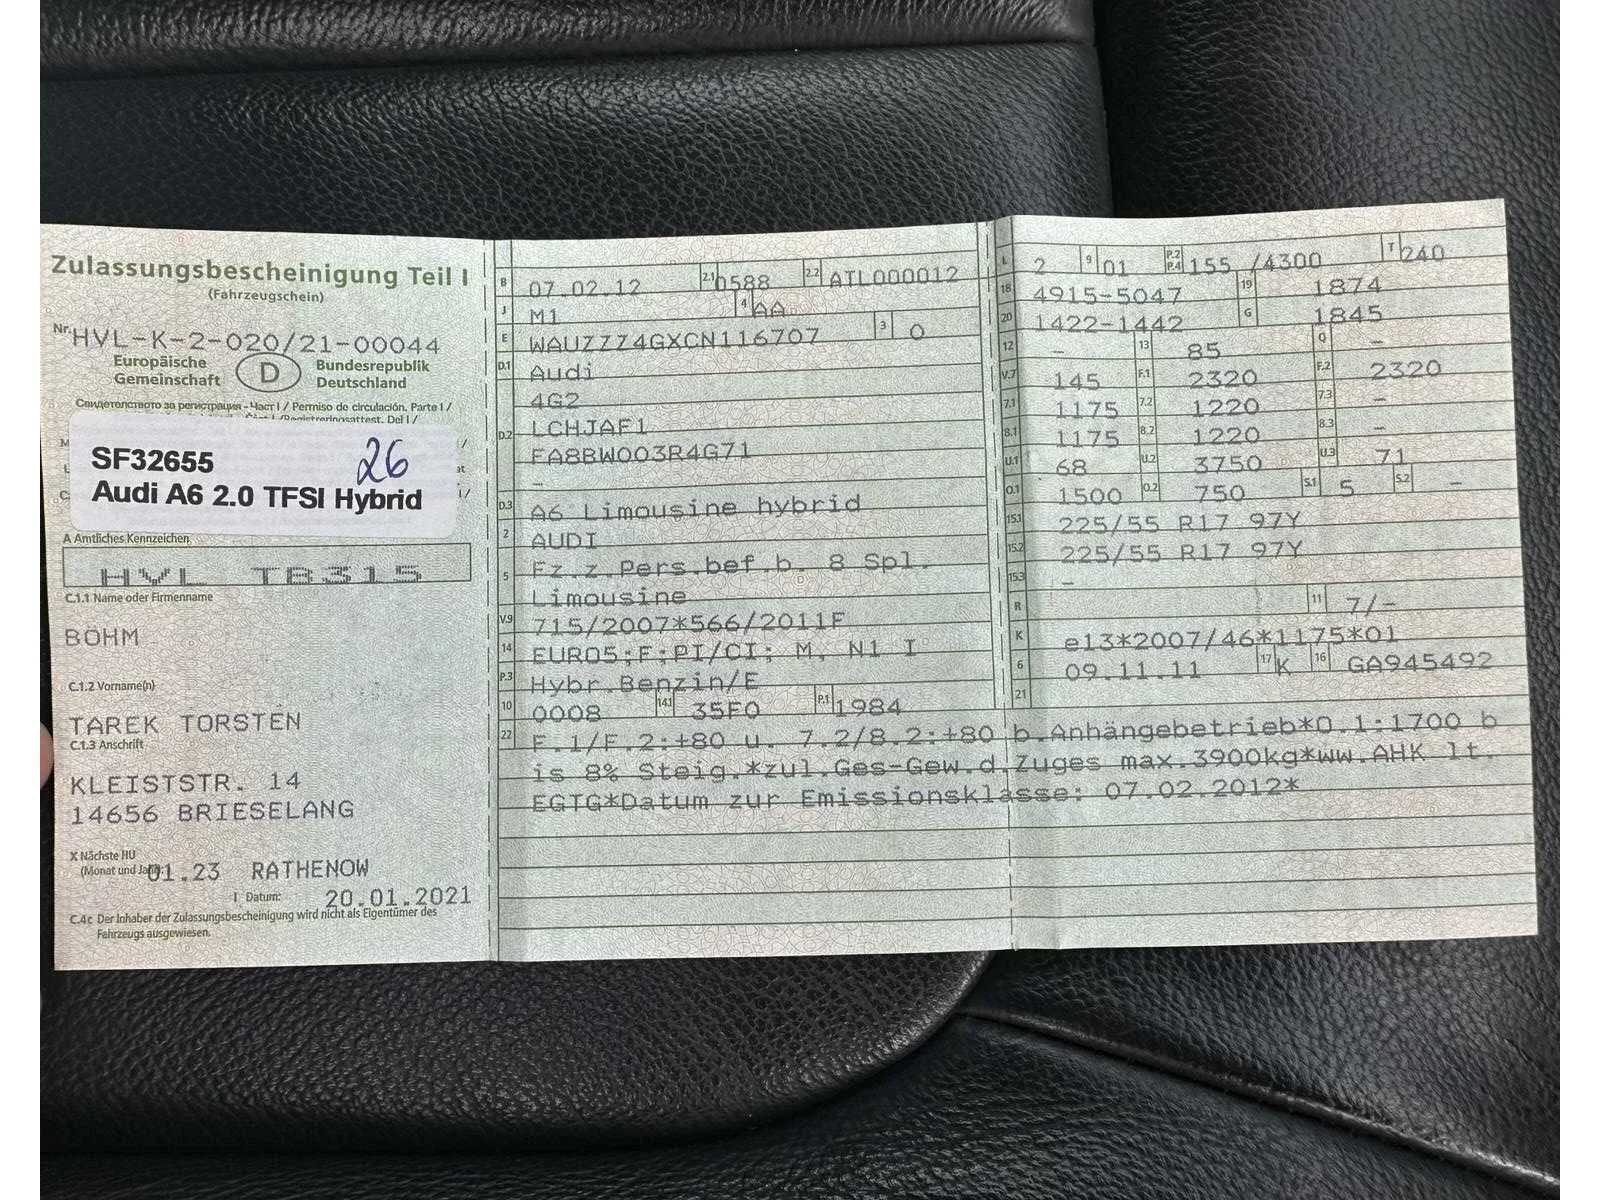 Zulassungsbescheinigung Teil I
(Fahrzeugschein)
Nr. HVL-K-2-020/21-00044
Europäische Gemeinschaft D Bundesrepublik Deutschland
Свидетелството за регистрация - Част I / Permiso de circulación. Parte I /
SF32655 26
Audi A6 2.0 TFSI Hybrid
A Amtliches Kennzeichen
HVL TB315
C.1.1 Name oder Firmenname
BÖHM
C.1.2 Vorname(n)
TAREK TORSTEN
C.1.3 Anschrift
KLEISTSTR. 14
14656 BRIESELANG
X Nächste HU
(Monat und Jahr): 01.23 RATHENOW
I Datum: 20.01.2021
C.4c Der Inhaber der Zulassungsbescheinigung wird nicht als Eigentümer des
Fahrzeugs ausgewiesen.
B 07.02.12 2.1 0588 2.2 ATL000012
J M1 4 AA
E WAUZZZ4GXCN116707 3 0
D.1 Audi
4G2
D.2 LCHJAF1
FA8BW003R4G71
-
D.3 A6 Limousine hybrid
2 AUDI
5 Fz.z.Pers.bef.b. 8 Spl.
Limousine
V.9 715/2007*566/2011F
14 EURO5;F;PI/CI; M, N1 I
P.3 Hybr.Benzin/E
10 0008 14.1 35F0 P.1 1984
L 2 9 01 P.2 P.4 155 /4300 T 240
18 4915-5047 19 1874
20 1422-1442 G 1845
12 - 13 85 Q -
V.7 145 F.1 2320 F.2 2320
7.1 1175 7.2 1220 7.3 -
8.1 1175 8.2 1220 8.3 -
U.1 68 U.2 3750 U.3 71
O.1 1500 O.2 750 S.1 5 S.2 -
15.1 225/55 R17 97Y
15.2 225/55 R17 97Y
15.3 -
R 11 7/-
K e13*2007/46*1175*01
6 09.11.11 17 K 16 GA945492
21
22 F.1/F.2:+80 u. 7.2/8.2:+80 b.Anhängebetrieb*O.1:1700 b
is 8% Steig.*zul.Ges-Gew.d.Zuges max.3900kg*ww.AHK lt.
EGTG*Datum zur Emissionsklasse: 07.02.2012*